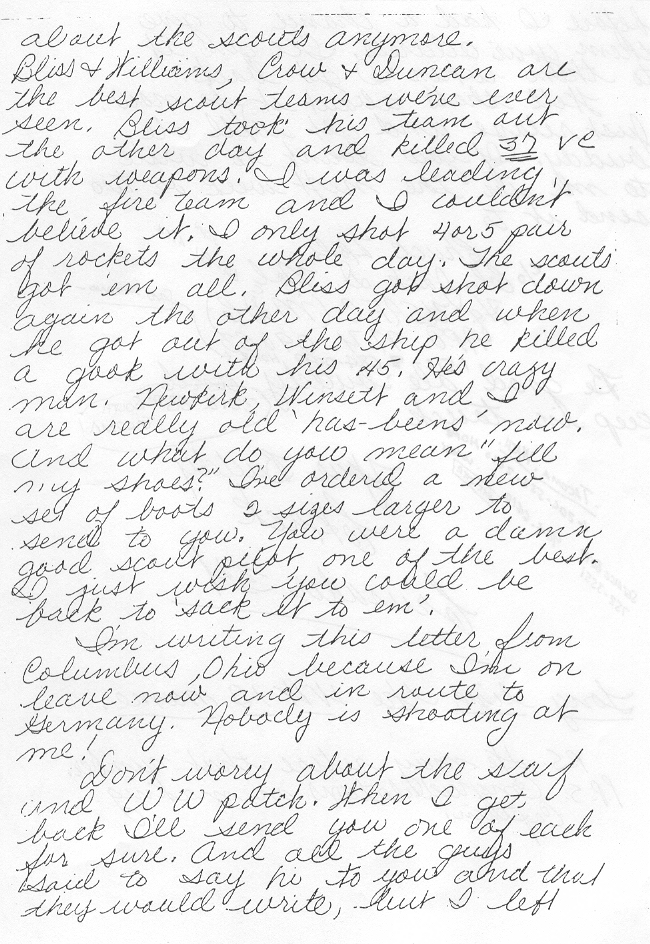 about the scouts anymore.
Bliss & Williams, Crow & Duncan are
the best scout teams we've ever
seen. Bliss took his team out
the other day and killed 37 VC
with weapons. I was leading
the fire team and I couldn't
believe it. I only shot 4 or 5 pair
of rockets the whole day. The scouts
got 'em all. Bliss got shot down
again the other day and when
he got out of the ship he killed
a gook with his 45. He's crazy
man. Newkirk, Winsett and I
are really old 'has-beens' now.
And what do you mean "fill
my shoes?" I've ordered a new
set of boots 2 sizes larger to
send to you. You were a damn
good scout pilot, one of the best.
I just wish you could be
back to 'sack it to em'.
I'm writing this letter from
Columbus, Ohio because I'm on
leave now and in route to
Germany. Nobody is shooting at
me!
Don't worry about the scarf
and WW patch. When I get
back I'll send you one of each
for sure. And all the guys
said to say hi to you and that
they would write, but I left